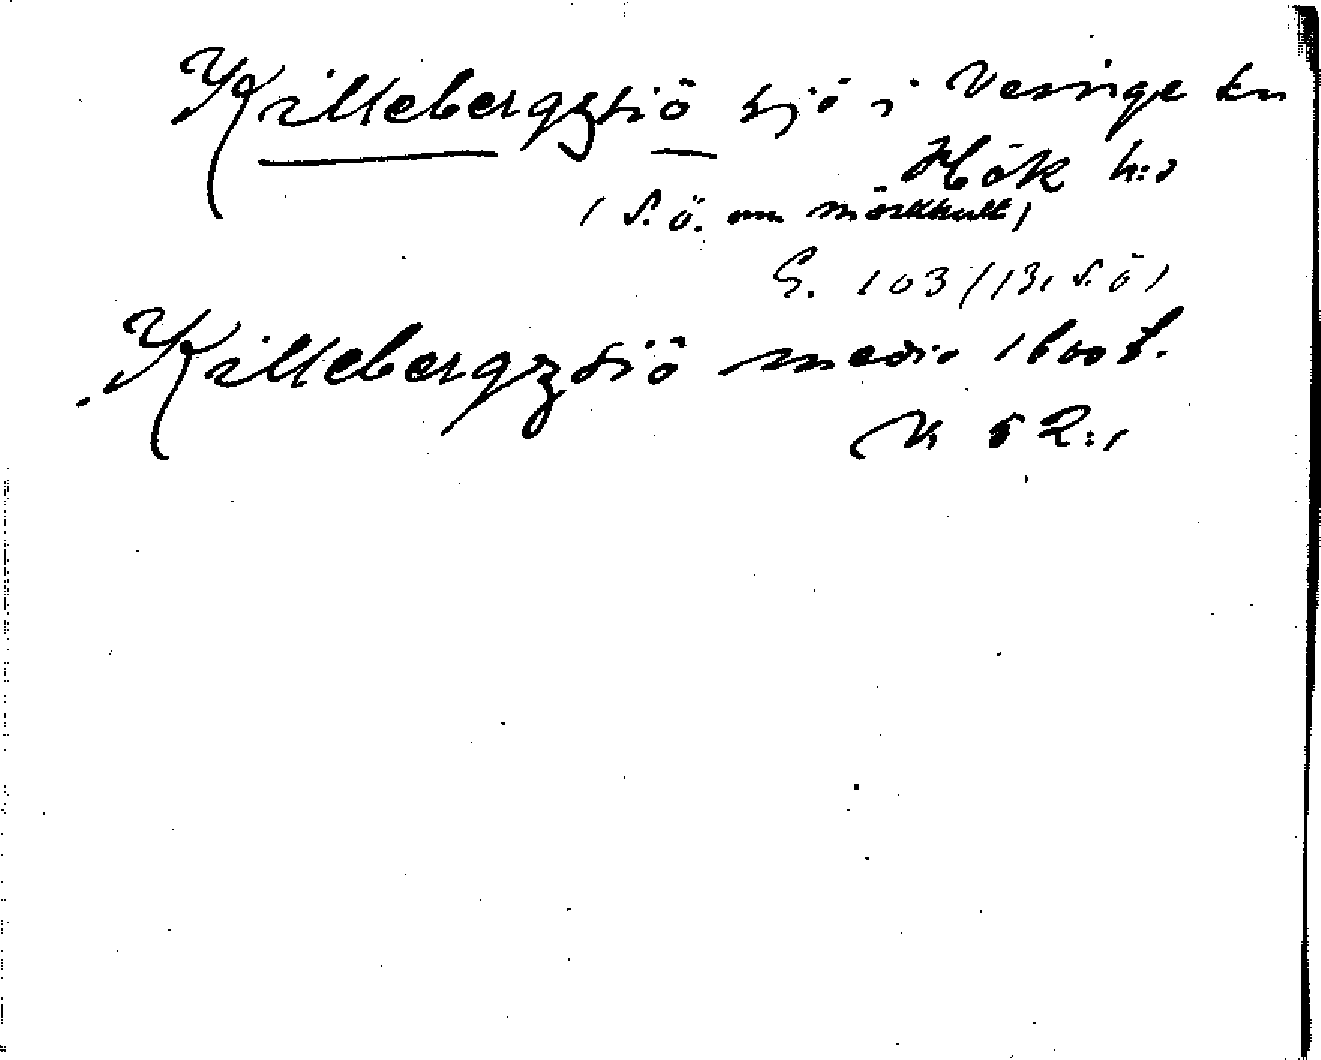 Killebergzsiö sjö i Vessinge sn
Hök h:d
(S.Ö. om Mörkhult)
G. 103 (13, S.Ö)
Killebergzsiö medio 1600 t.
52:1